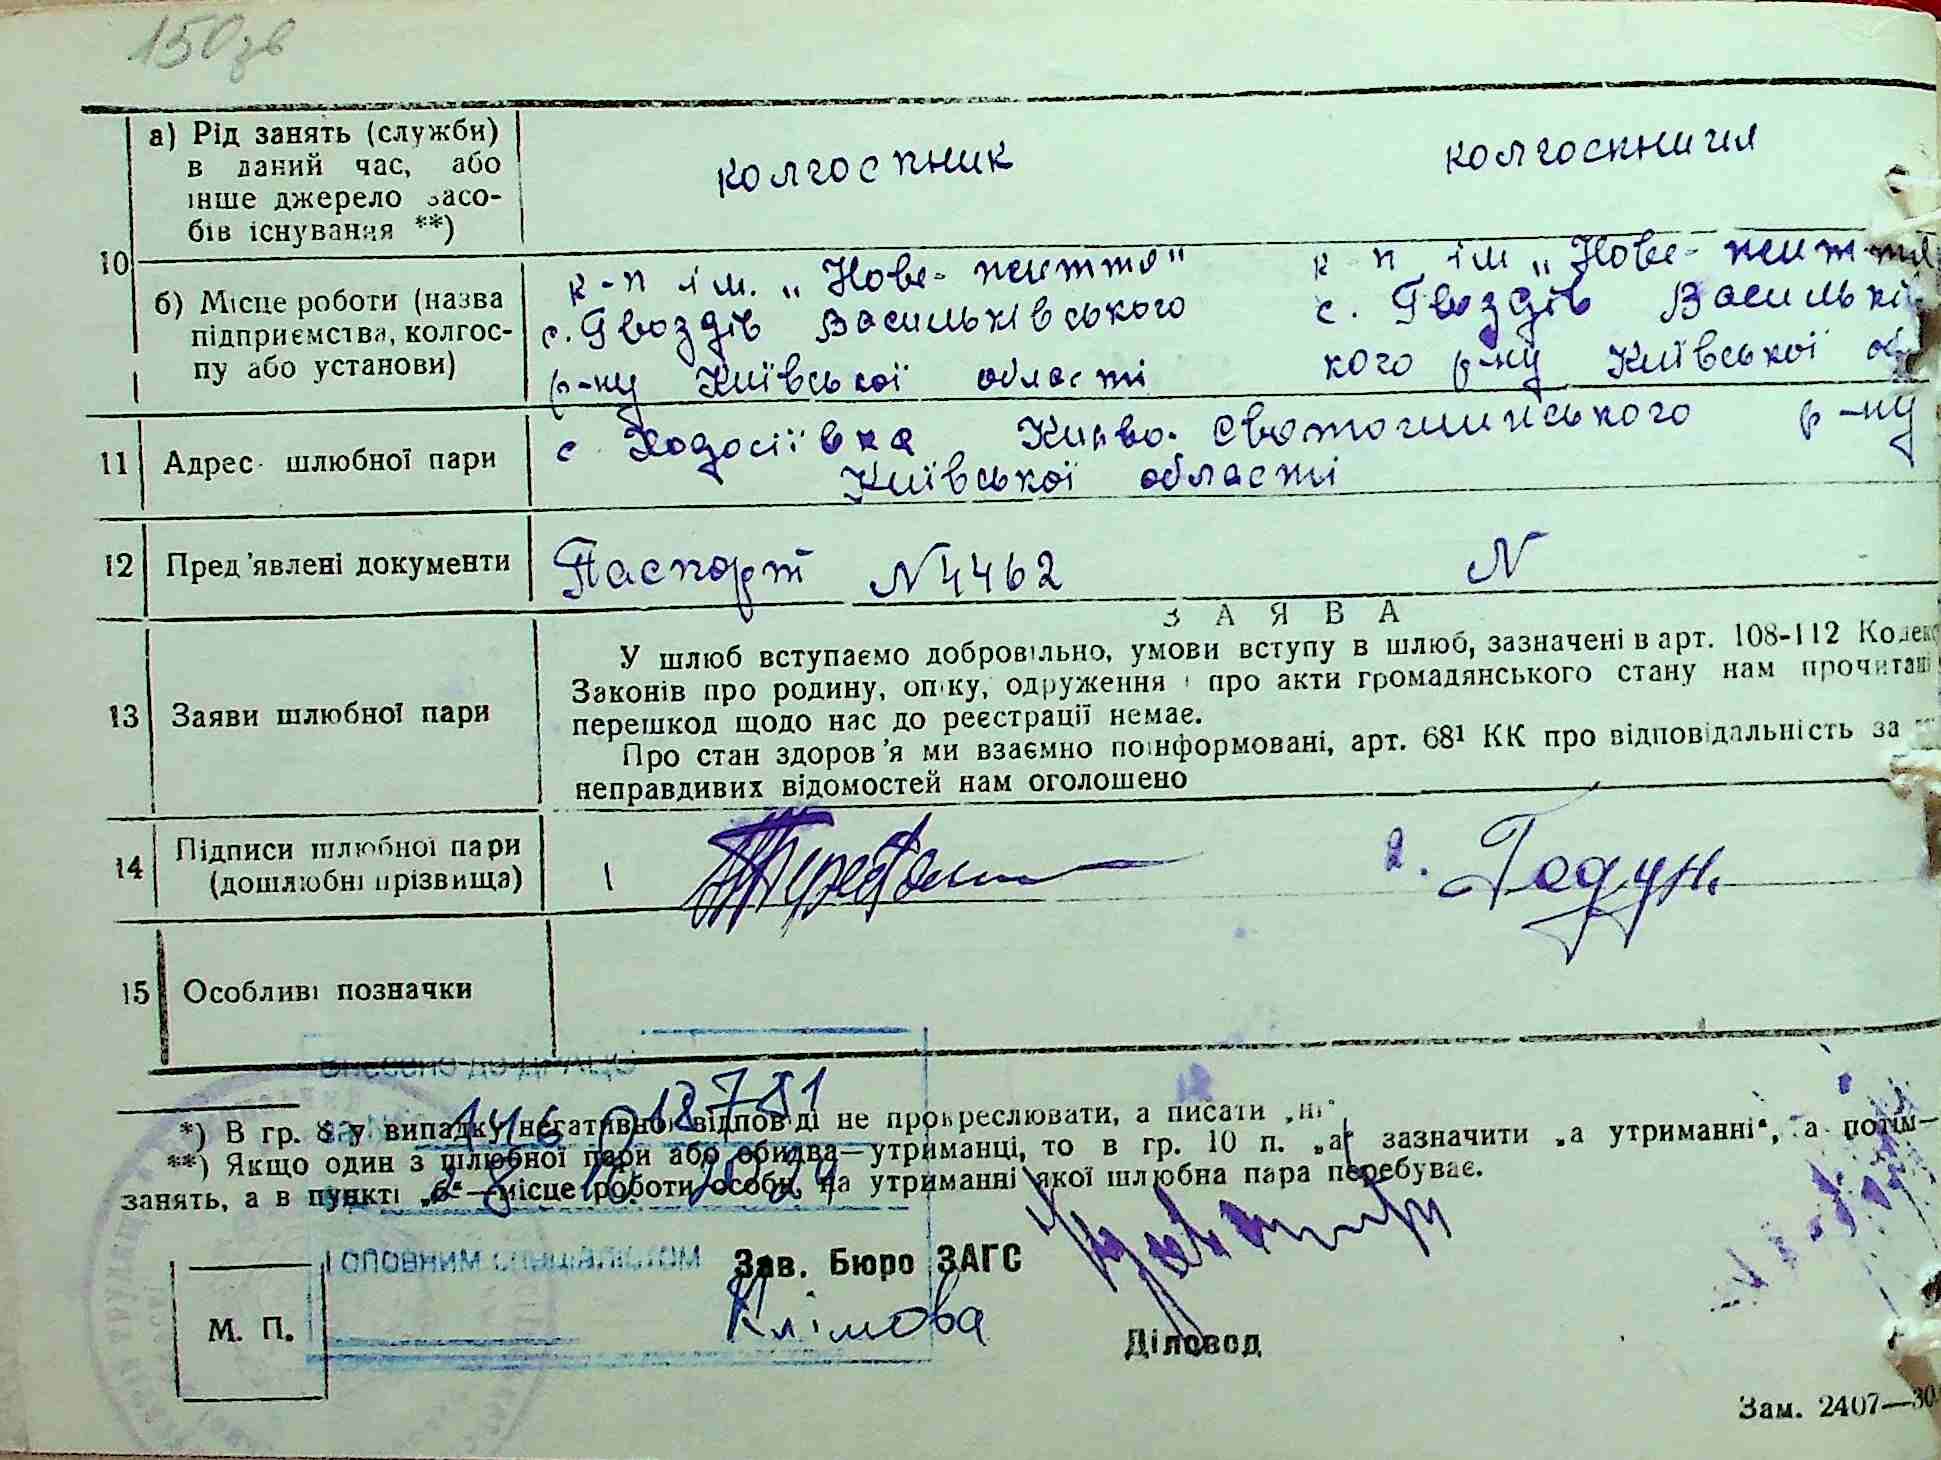 150зв
а) Рід занять (служби) в даний час, або інше джерело засобів існування **)
колгоспник
колгоспниця
10
б) Місце роботи (назва підприємства, колгоспу або установи)
к-п ім. „Нове-життя"
с. Гвоздів Васильківського
р-ну Київської області
к-п ім „Нове-життя
с. Гвоздів Василькі
кого р-ну Київської об
11 Адрес шлюбної пари
с. Ходосіївка Києво-Святошинського р-ну
Київської області
12 Пред'явлені документи
Паспорт N 4462
N
ЗАЯВА
13 Заяви шлюбної пари
У шлюб вступаємо добровільно, умови вступу в шлюб, зазначені в арт. 108-112 Кодекс
Законів про родину, опіку, одруження і про акти громадянського стану нам прочитані
перешкод щодо нас до реєстрації немає.
Про стан здоров'я ми взаємно поінформовані, арт. 68¹ КК про відповідальність за
неправдивих відомостей нам оголошено
14 Підписи шлюбної пари
(дошлюбні прізвища)
1
2. Годун.
15 Особливі позначки
ВНЕСЕНО ДО ДРАЦС
*) В гр. 8 у випадку негативної відповіді не прокреслювати, а писати „ні"
**) Якщо один з шлюбної пари або обидва—утриманці, то в гр. 10 п. „а" зазначити „а утриманні", а потім—
занять, а в пункті „б"—місце роботи особи, на утриманні якої шлюбна пара перебуває.
ГОЛОВНИМ СПЕЦІАЛІСТОМ
Зав. Бюро ЗАГС
Клімова
М. П.
Діловод
Зам. 2407—30